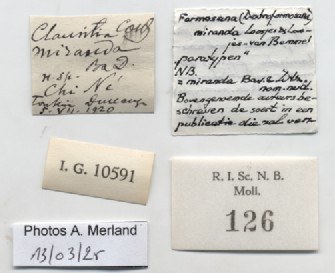 Clausilia
miranda
n. sp.
Chi Né
Tonkin
1920
Formosana
miranda Loosjes & Loos-
jes-van Bemmel
"paratypen"
N.B.
= miranda Bav. & Dtz.
nom. nud.
Bovengenoemde auteurs be-
schreven de soort in een
publicatie die zal vers-
I. G. 10591
R. I. Sc. N. B.
Moll.
126
Photos A. Merland
13/03/25